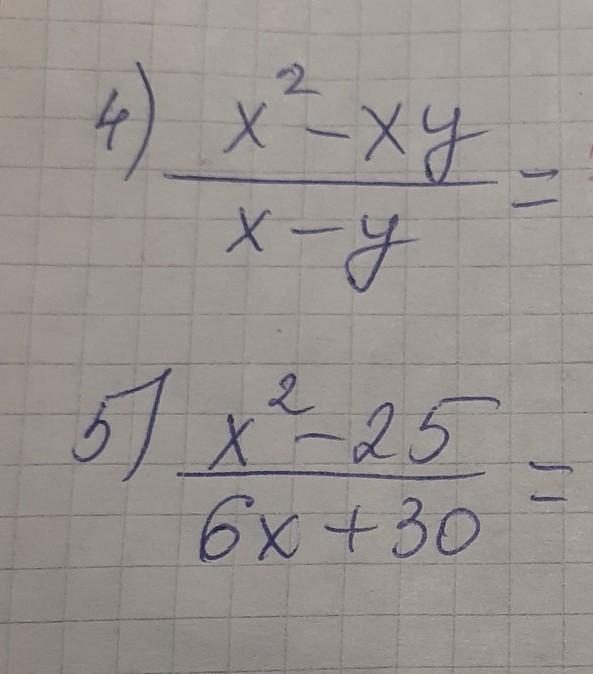 4) x² - xy
x - y =
5) x² - 25
6x + 30 =